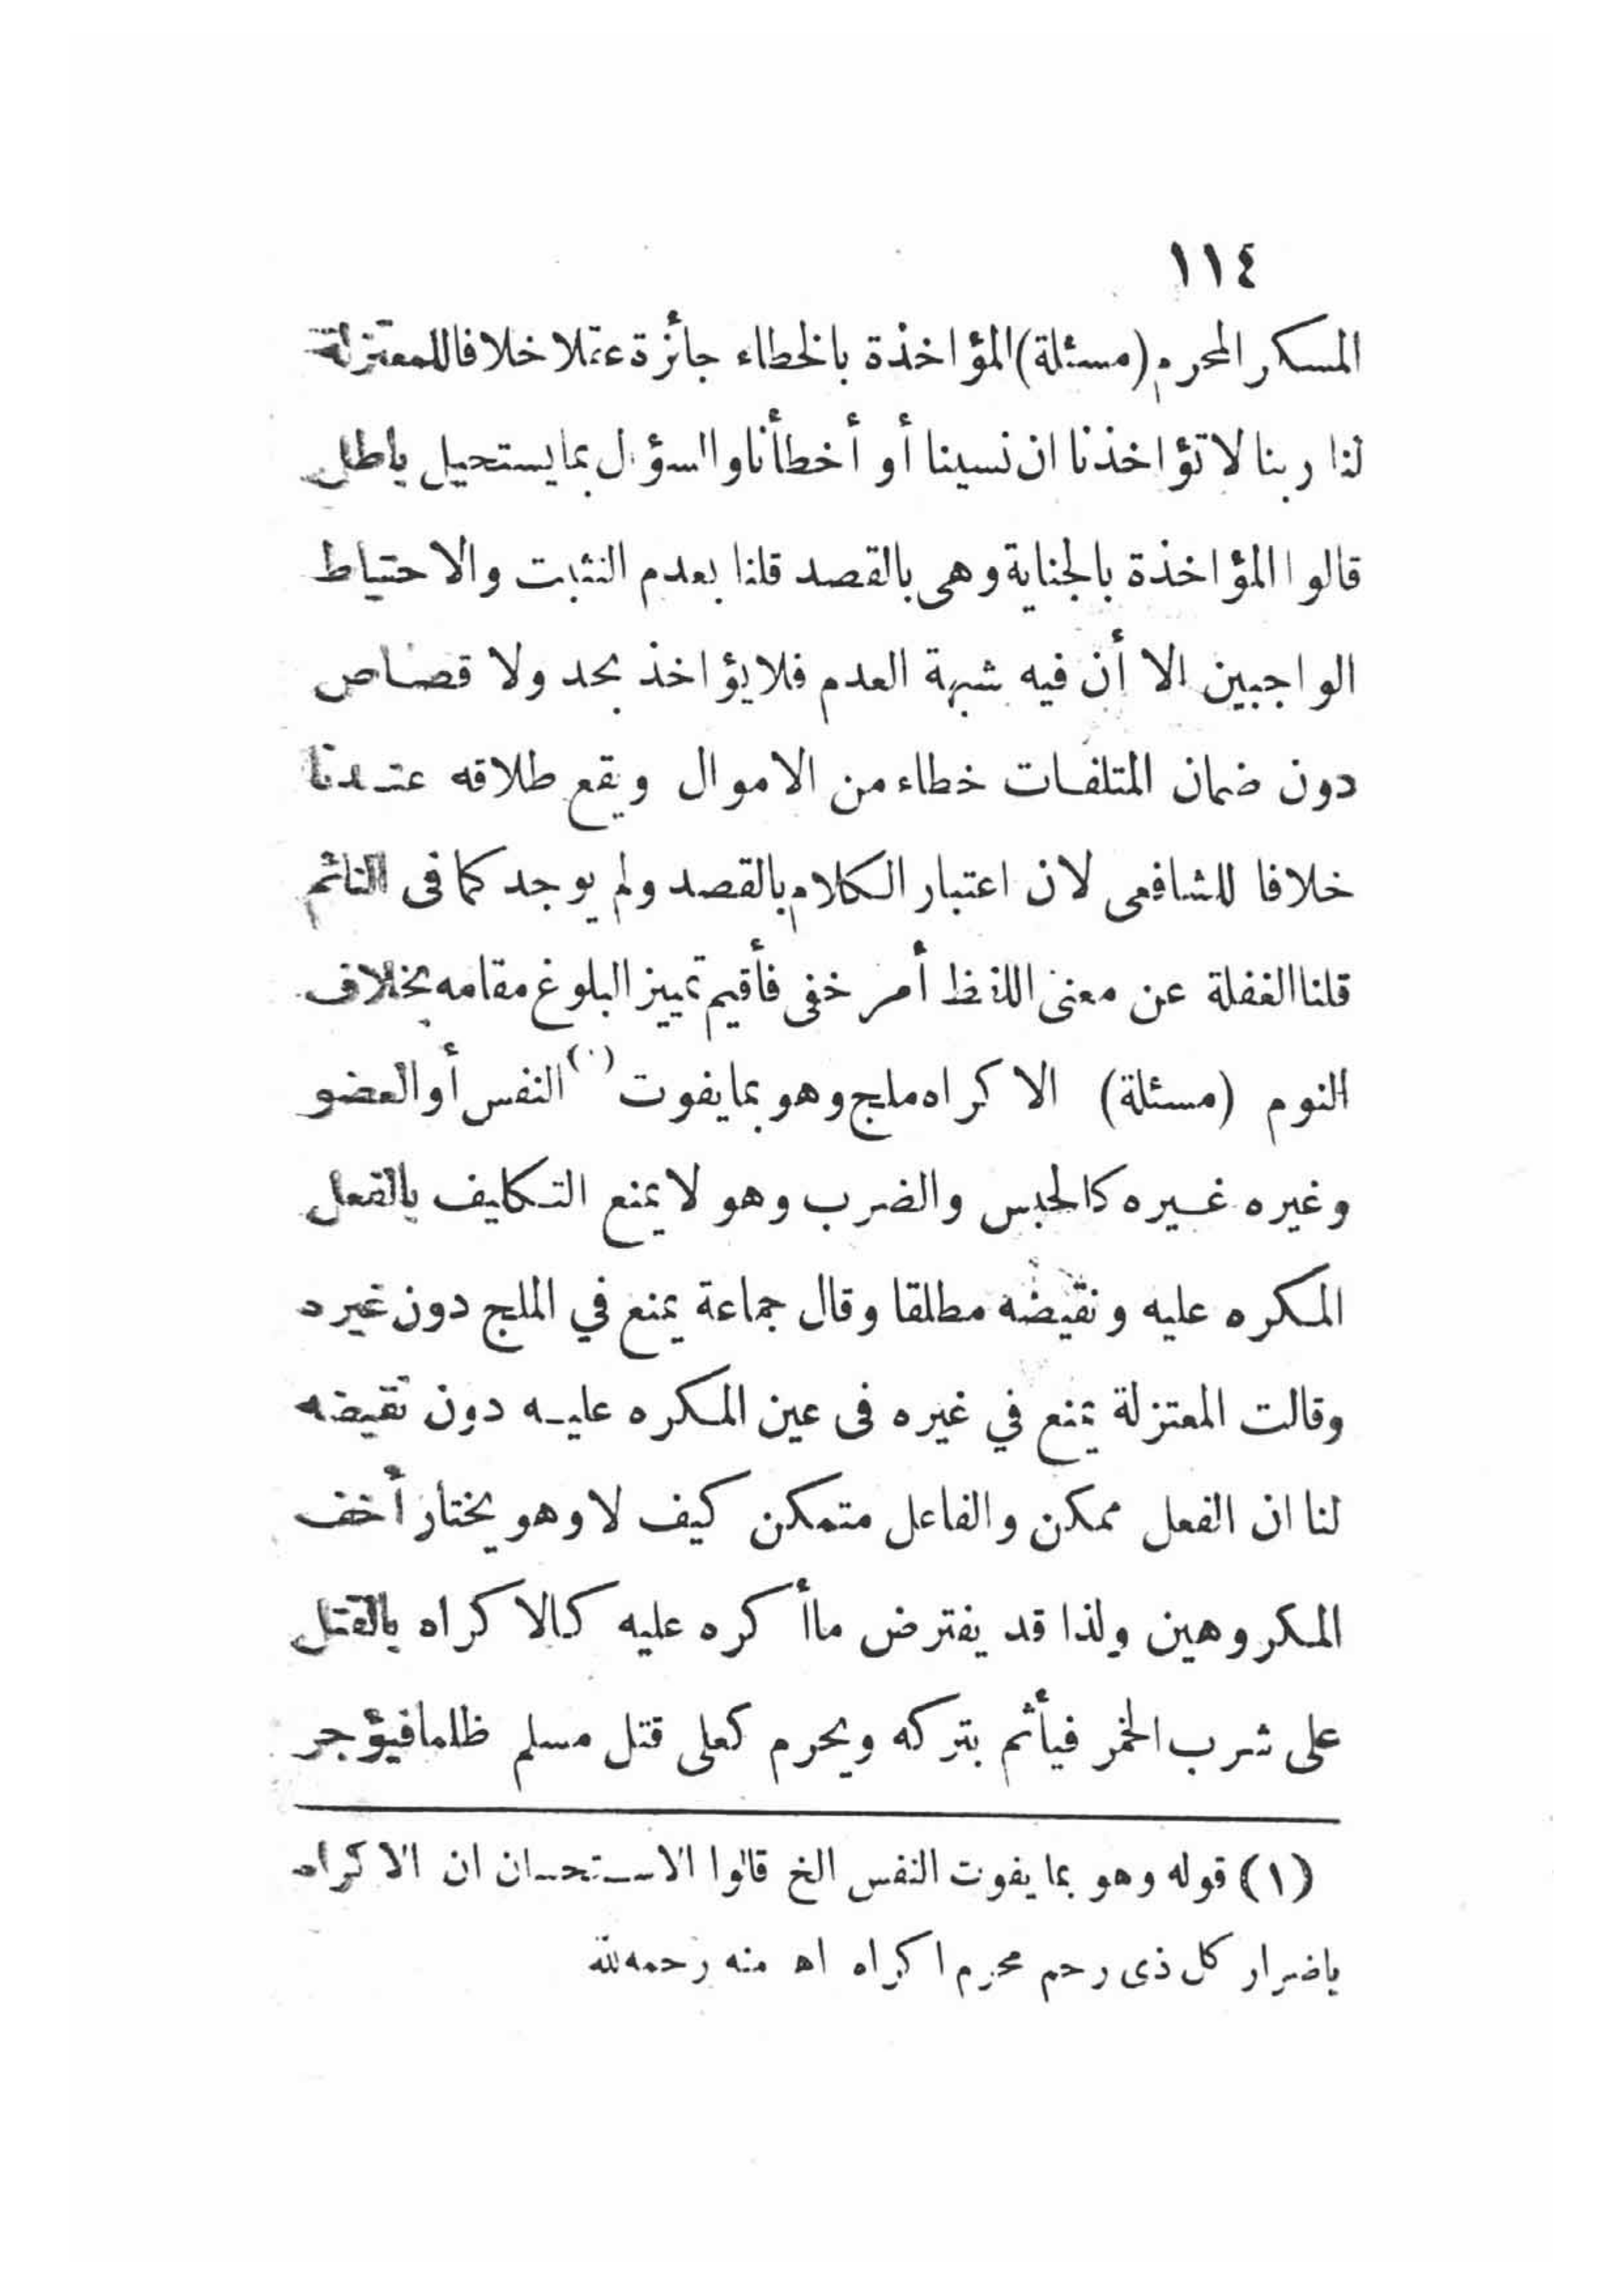 ١١٤
المسكر المحرم (مسئلة) المؤاخذة بالخطاء جائزة عقلا خلافا للمعتزلة
لنا ربنا لا تؤاخذنا ان نسينا أو أخطأنا والسؤال بما يستحيل باطل
قالوا المؤاخذة بالجناية وهى بالقصد قلنا بعدم التثبت والاحتياط
الواجبين الا أن فيه شبهة العدم فلا يؤاخذ بحد ولا قصاص
دون ضمان المتلفات خطاء من الاموال ويقع طلاقه عندنا
خلافا للشافعى لان اعتبار الكلام بالقصد ولم يوجد كما فى النائم
قلنا الغفلة عن معنى اللفظ أمر خفى فأقيم تمييز البلوغ مقامه بخلاف
النوم (مسئلة) الاكراه ملج وهو بما يفوت (١) النفس أو العضو
وغيره غيره كالحبس والضرب وهو لا يمنع التكليف بالفعل
المكره عليه ونقيضه مطلقا وقال جماعة يمنع في الملج دون غيره
وقالت المعتزلة يمنع في غيره فى عين المكره عليه دون نقيضه
لنا ان الفعل ممكن والفاعل متمكن كيف لا وهو يختار أخف
المكروهين ولذا قد يفترض ما أكره عليه كالاكراه بالقتل
على شرب الخمر فيأثم بتركه ويحرم كعلى قتل مسلم ظلما فيؤجر
(١) قوله وهو بما يفوت النفس الخ قالوا الاستحسان ان الاكراه
باضرار كل ذى رحم محرم اكراه اه منه رحمه لله